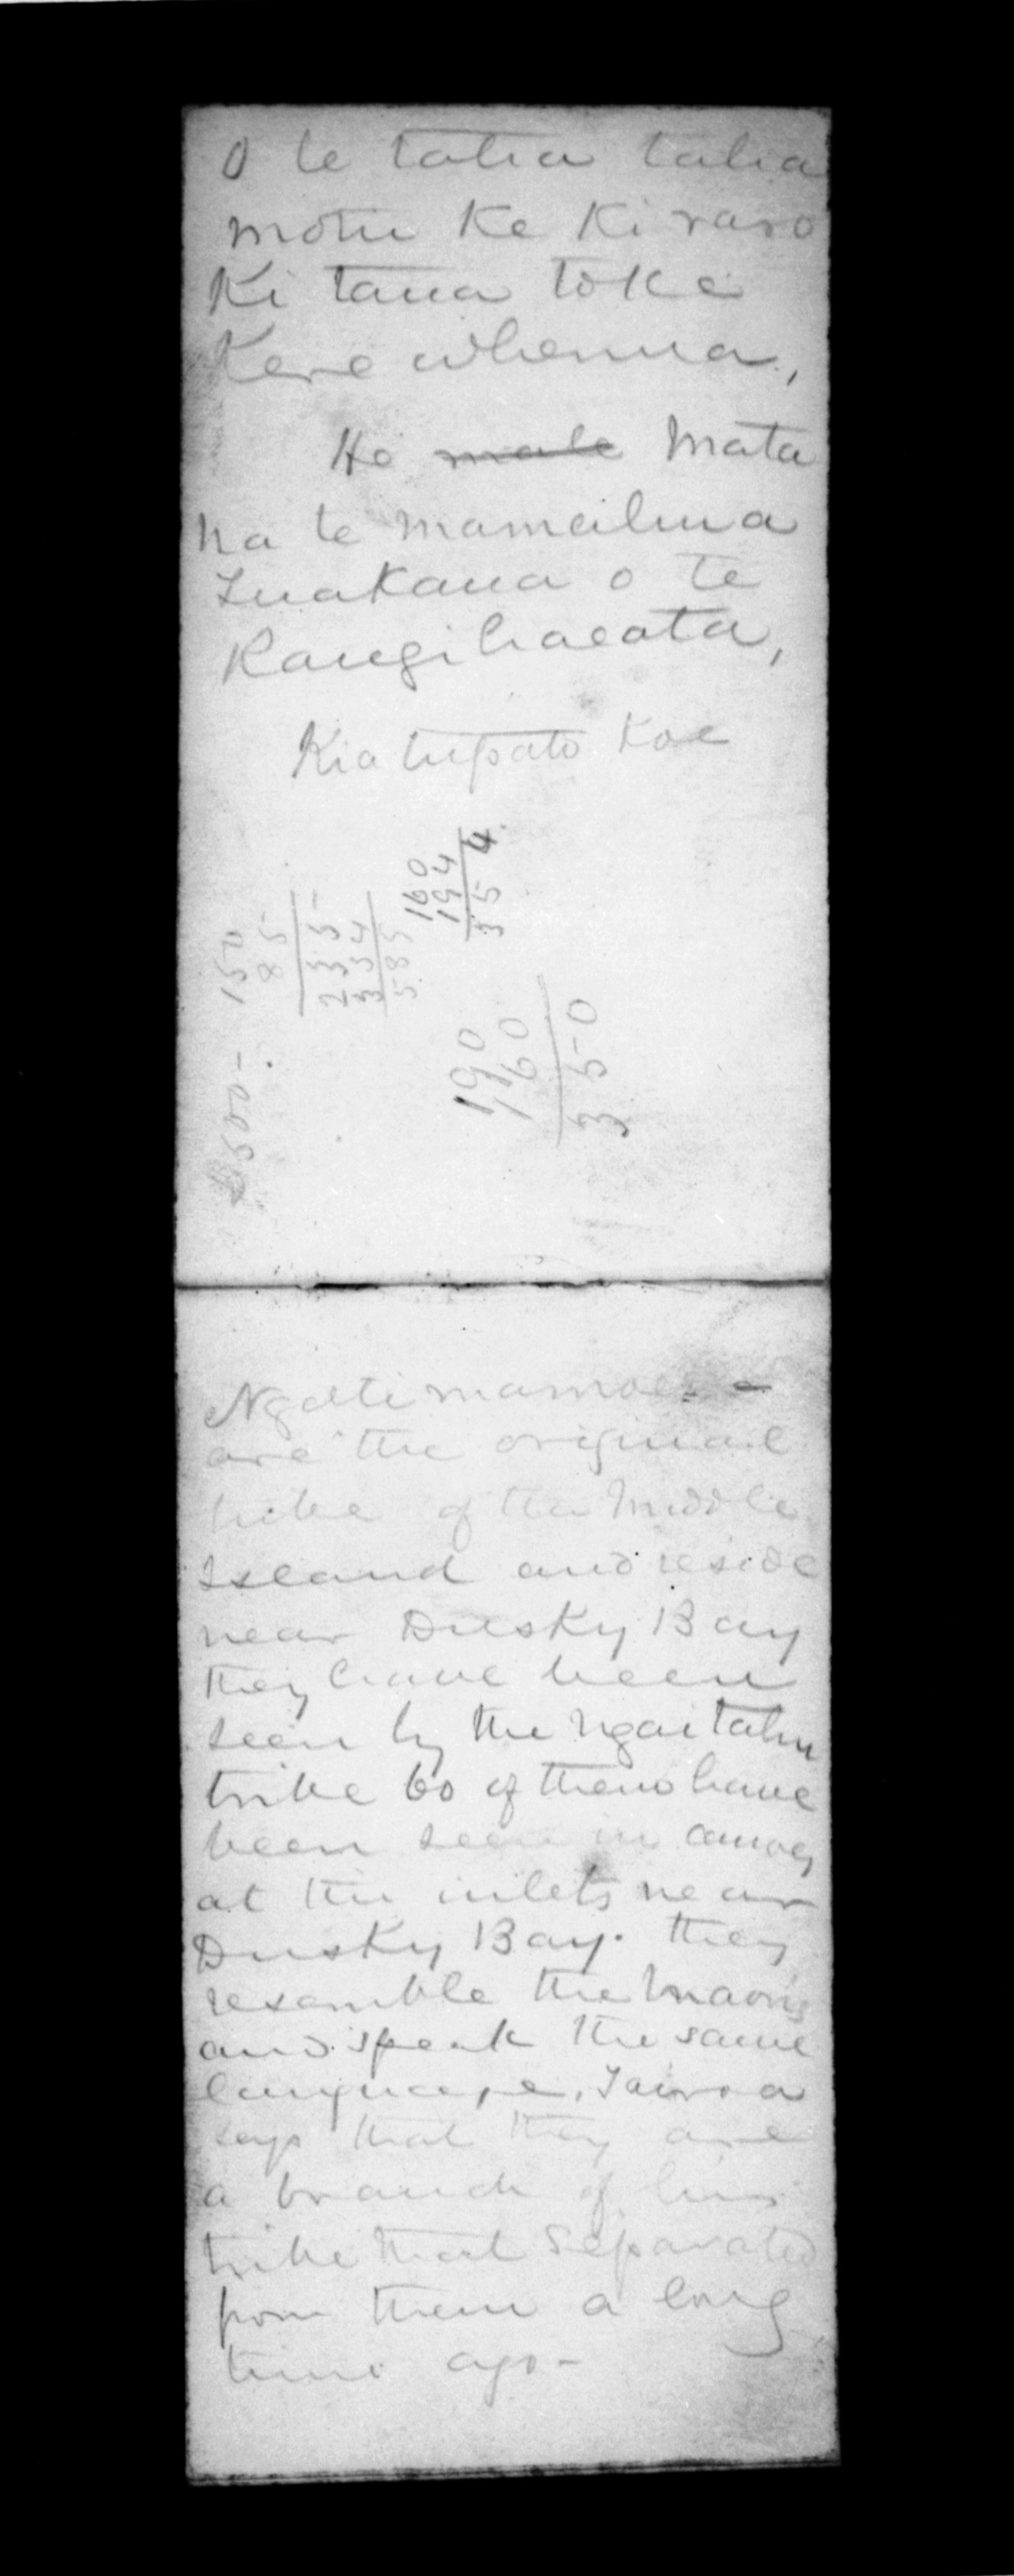 O te tatua tahia
motu ke ki raro
Ki taua toka
Kere whenua,
He mate Mata
na te mamaihua
Tuakana o te
Rangihaeata,
Kia tupato koe
160
194
354
150
85
235
354
585
£500-
190
160
350
Ngatimamoe -
are the original
tribe of the Middle
Island and reside
near Dusky Bay
they have been
seen by the Ngaitahu
tribe 60 of them have
been seen in canoes
at the inlets near
Dusky Bay. they
resemble the Maoris
and speak the same
language, Tairoa
says that they are
a branch of his
tribe that separated
from them a long
time ago -